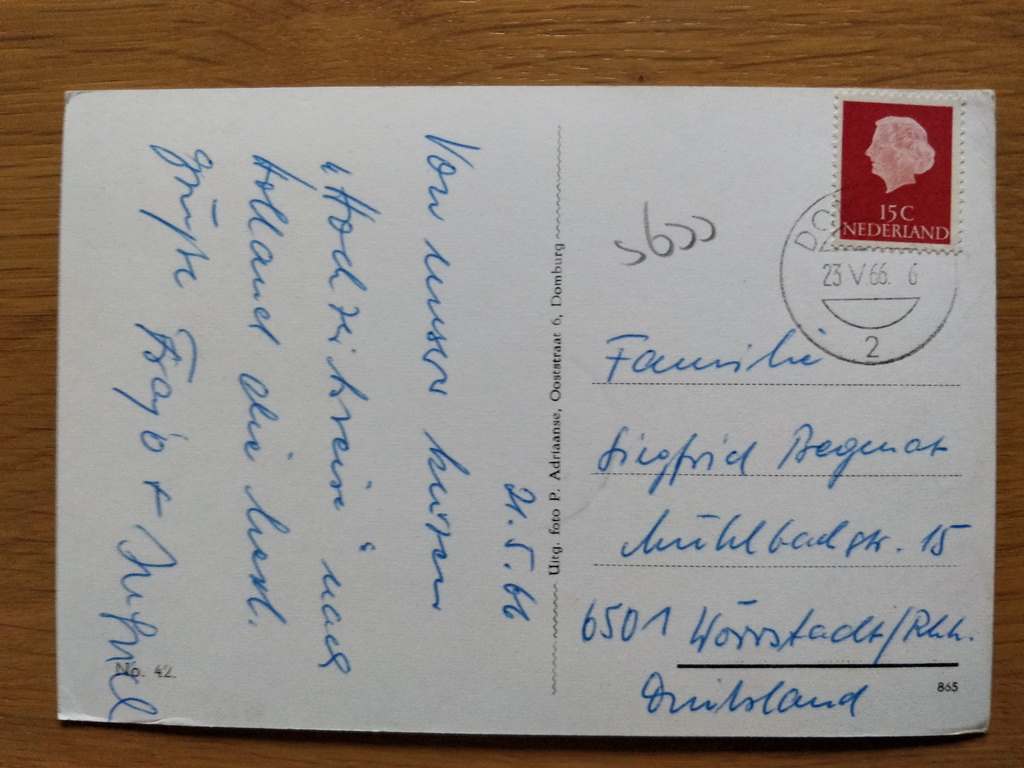 21.5.66
Von unser kurzen
Hochzeitsreise nach
Holland die herzl.
Grüße
No. 42.
Uitg. foto P. Adriaanse, Ooststraat 6, Domburg
15 C
NEDERLAND
DO
23 V.66. 6
2
Familie
Siegfrid
Mühlbachstr. 15
6501 Wörrstadt/Rhh.
Deutschland
865